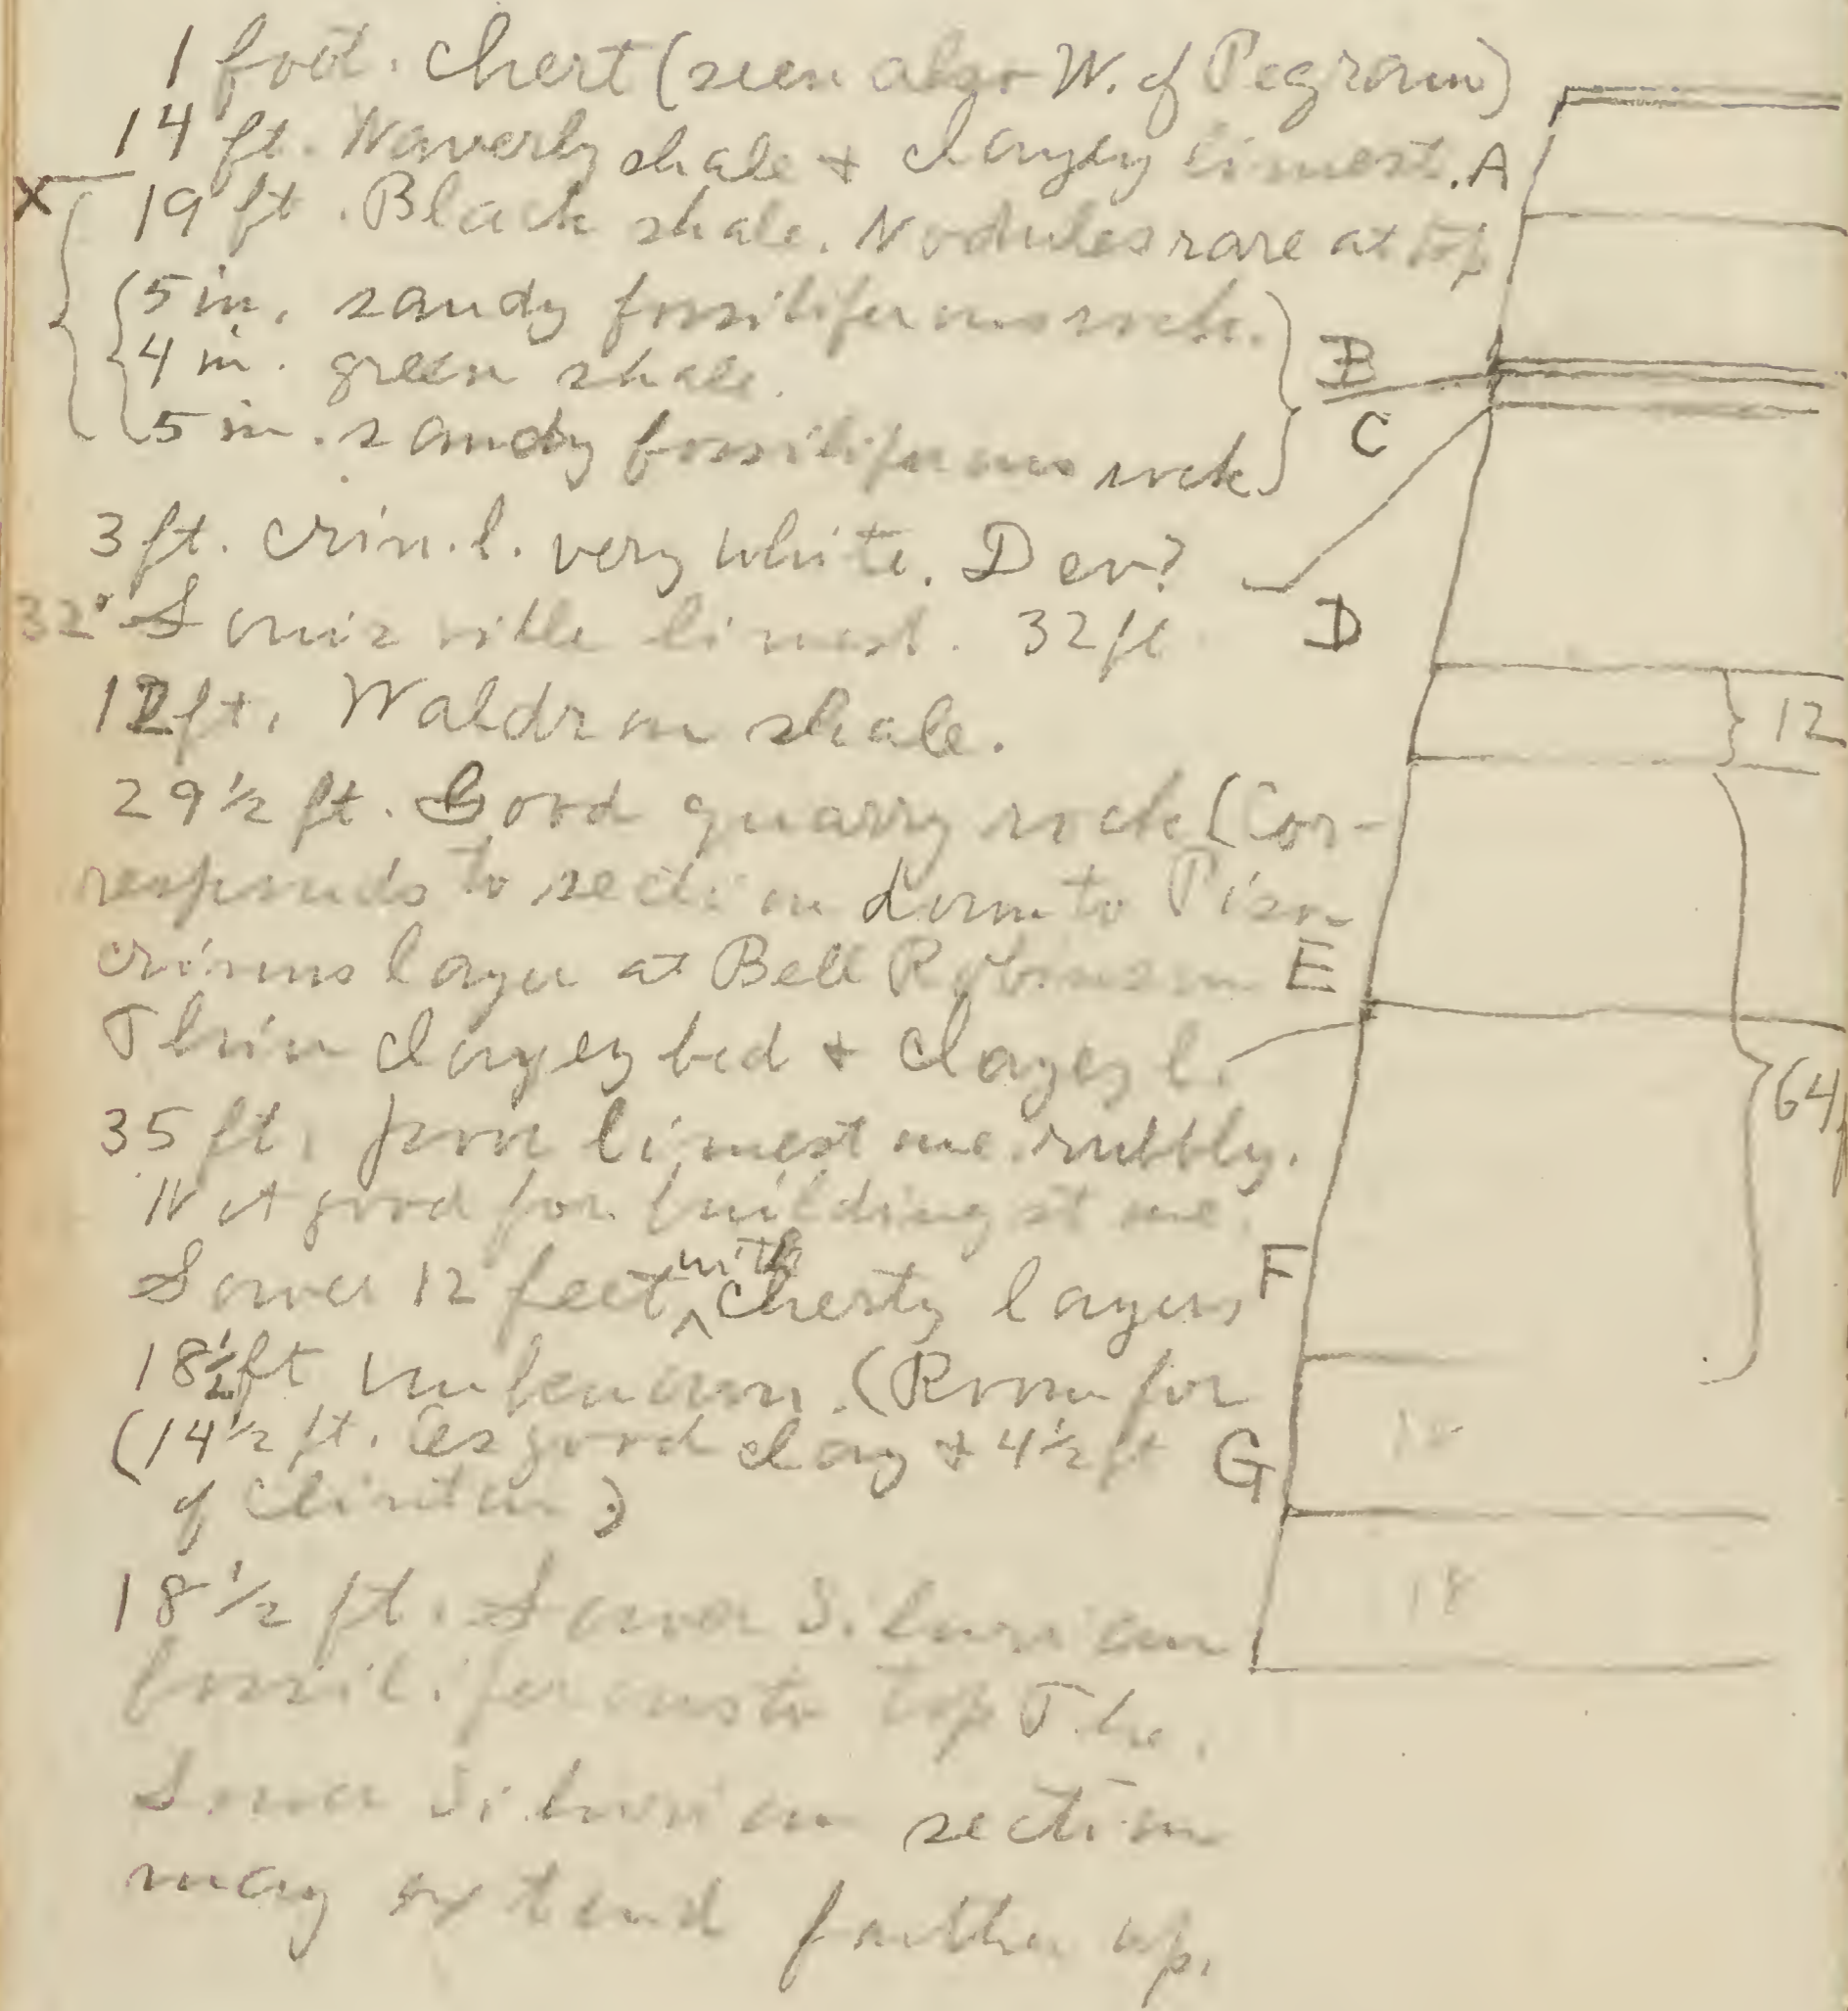 1 foot. Chert (seen also W. of Pegram)
14 ft. Waverly shale + clayey limest. A
X 19 ft. Black shale. Nodules rare at top
5 in. sandy fossiliferous rock.
4 in. green shale. B
5 in. sandy fossiliferous rock C
3 ft. crin. l. very white. Dev?
32' Louisville limest. 32 ft D
12 ft. Waldron shale. 12
29 1/2 ft. Good quarry rock (Cor-
responds to section down to Piso
crinus layer at Bell Robinson E
Thin clayey bed + clayey l.
35 ft. poor limestone rubbly. 64
Not good for building stone.
Lower 12 feet with cherty layers F
18 1/2 ft unknown. (Room for
(14 1/2 ft. Osgood clay + 4 1/2 ft G
of Clinton)
18 1/2 ft. Lower Silurian 18
fossiliferous to top The
Lower Silurian section
may extend farther up.